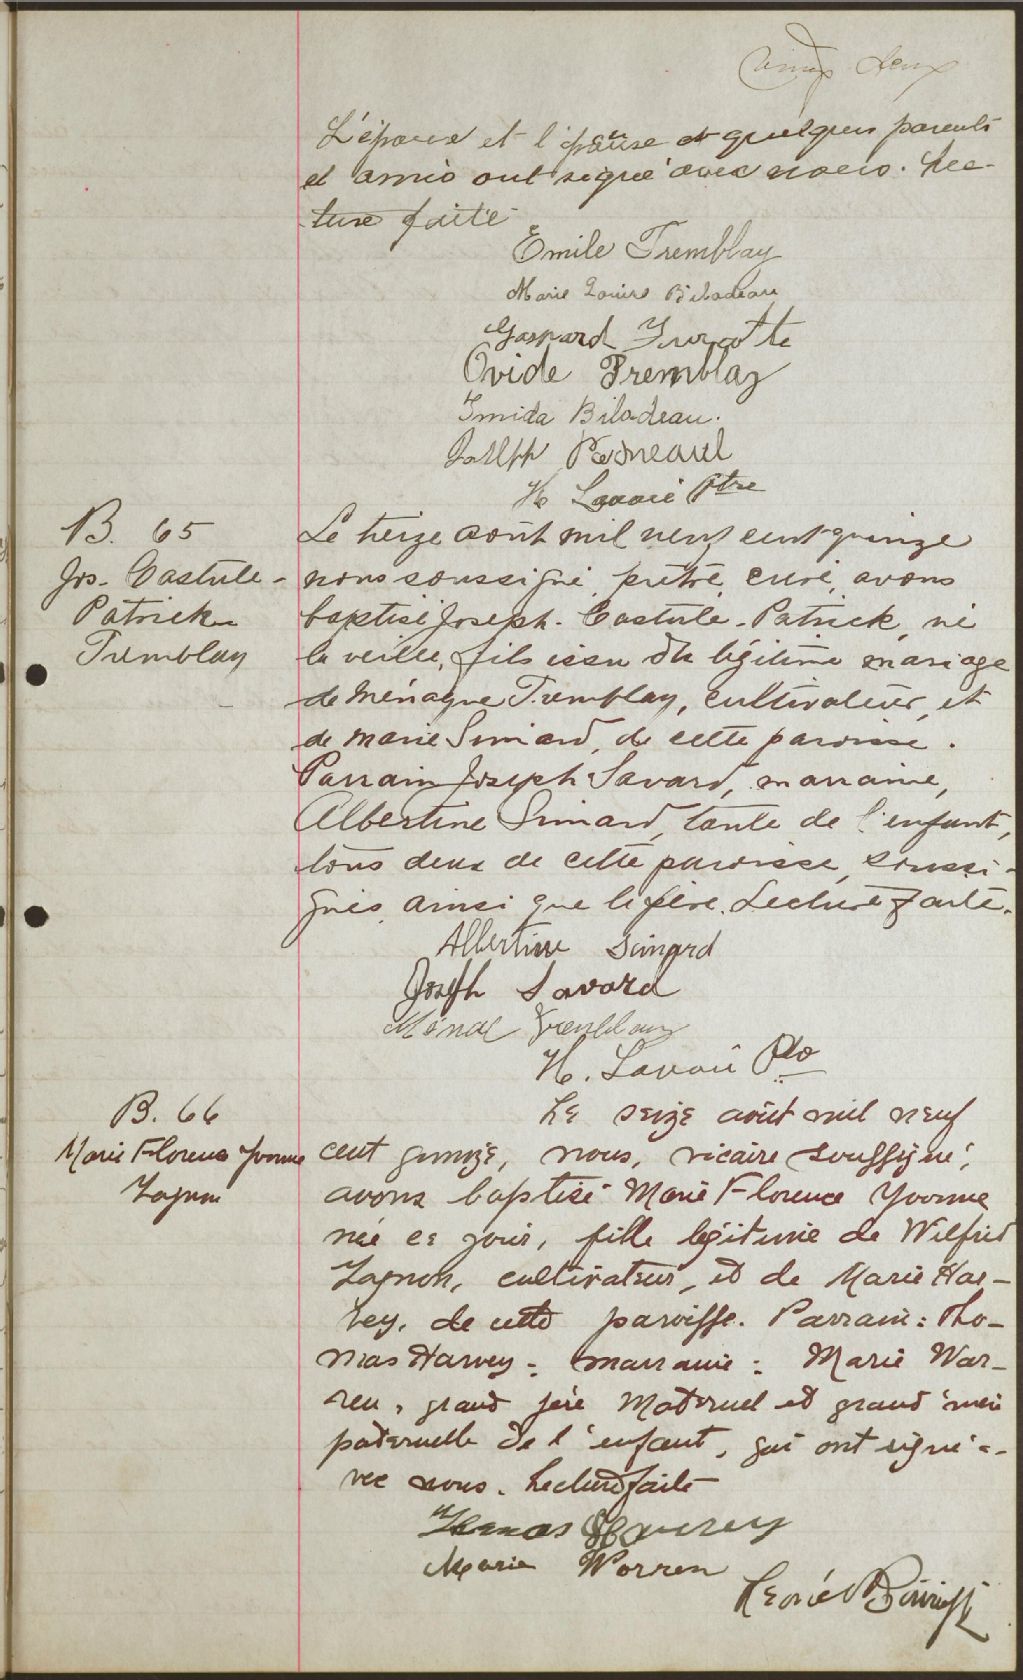 vingt deux
L'époux et l'épouse et quelques parents
et amis ont signé avec nous. Lec-
ture faite
Emile Tremblay
Marie Louise Biladeau
Gaspard Turcotte
Ovide Tremblay
Imida Biladeau.
Joseph
H Lavoie Ptre
B. 65
Jos. Castule-
Patrick
Tremblay
Le treize août mil neuf cent quinze
nous soussigné, prêtre, curé, avons
baptisé Joseph-Castule-Patrick, né
la veille, fils issu du légitime mariage
de Ménaque Tremblay, cultivateur, et
de marie Simard, de cette paroisse.
Parrain Joseph Savard, marraine,
Albertine Simard, tante de l'enfant,
tous deux de cette paroisse, soussi-
gnés ainsi que le père. Lecture faite.
Albertine Simard
Joseph Savard
Tremblay
H. Lavoie Ptre
B. 66
Marie Florence Yvonne
Gagnon
Le seize août mil neuf
cent quinze, nous, vicaire soussigné,
avons baptisé Marie Florence Yvonne
née ce jour, fille légitime de Wilfrid
Gagnon, cultivateur, et de Marie Har-
vey, de cette paroisse. Parrain: Tho-
mas Harvey; marraine: Marie War-
ren, grand père maternel et grand'mère
paternelle de l'enfant, qui ont signé a-
vec nous. Lecture faite
Thomas Harvey
Marie Warren